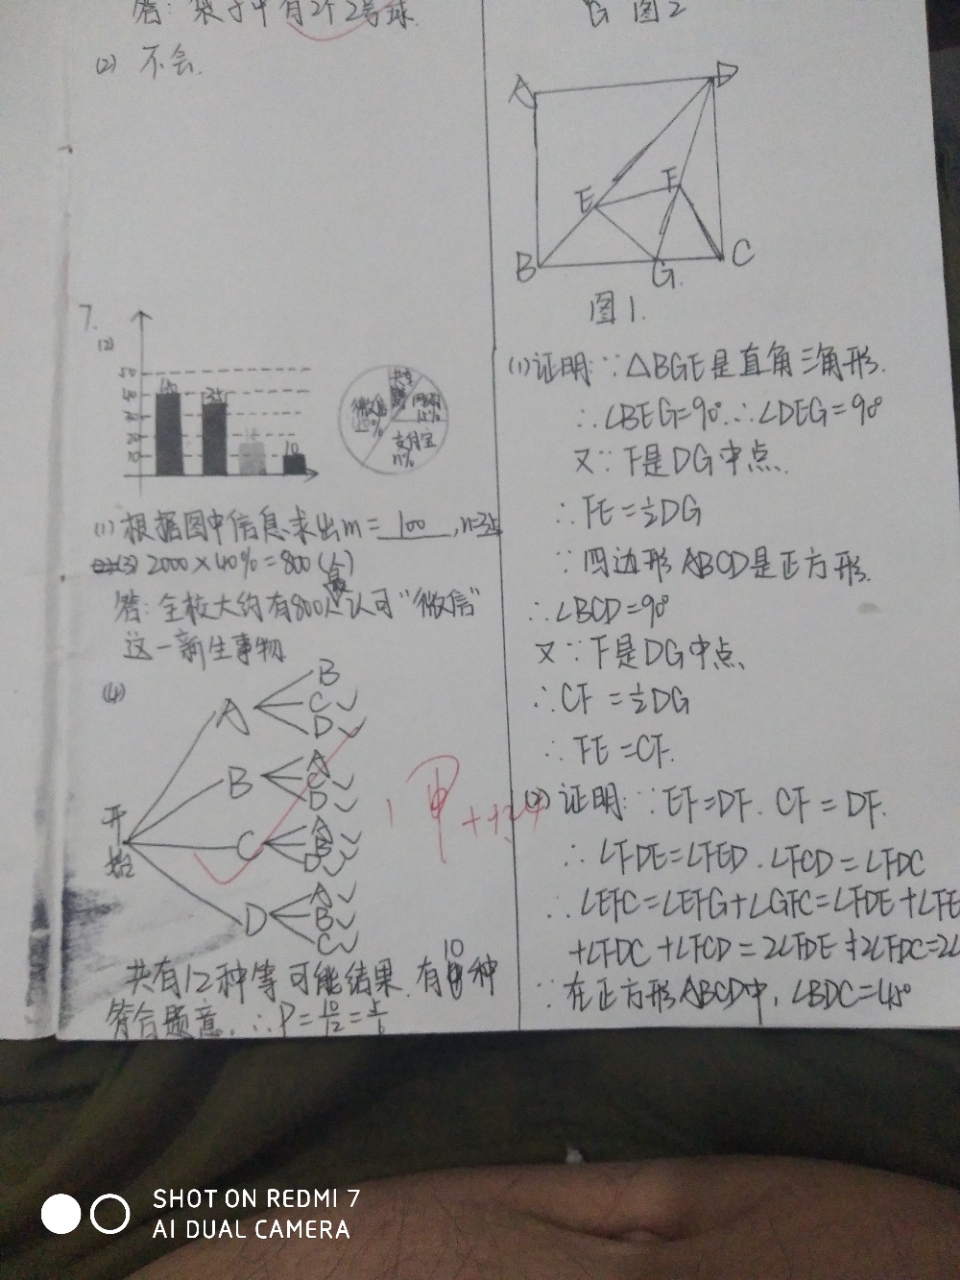 答：袋子中有2个2号球.
(2) 不会.
7.
(2)
50
40
35
10
微信
支付宝
n%
15%
(1) 根据图中信息求出m=100,n=35
(3) 2000×40%=800(名)
答：全校大约有800人认可“微信”
这一新生事物
(4)
开始
A
B
C✓
D✓
B
A
C✓
D✓
C
A✓
B✓
D✓
D
A✓
B✓
C✓
共有12种等可能结果.有10种
符合题意.∴P=10/12=5/6
G 图2
A
D
E
F
B
G
C
图1.
(1)证明:∵△BGE是直角三角形.
∴∠BEG=90°∴∠DEG=90°
又∵F是DG中点.
∴FE=½DG
∵四边形ABCD是正方形.
∴∠BCD=90°
又∵F是DG中点、
∴CF=½DG
∴FE=CF.
(2)证明:∵EF=DF.CF=DF.
∴∠FDE=∠FED.∠FCD=∠FDC
∴∠EFC=∠EFG+∠GFC=∠FDE+∠FE
+∠FDC+∠FCD=2∠FDE+2∠FDC=2∠
∵在正方形ABCD中,∠BDC=45°
SHOT ON REDMI 7
AI DUAL CAMERA